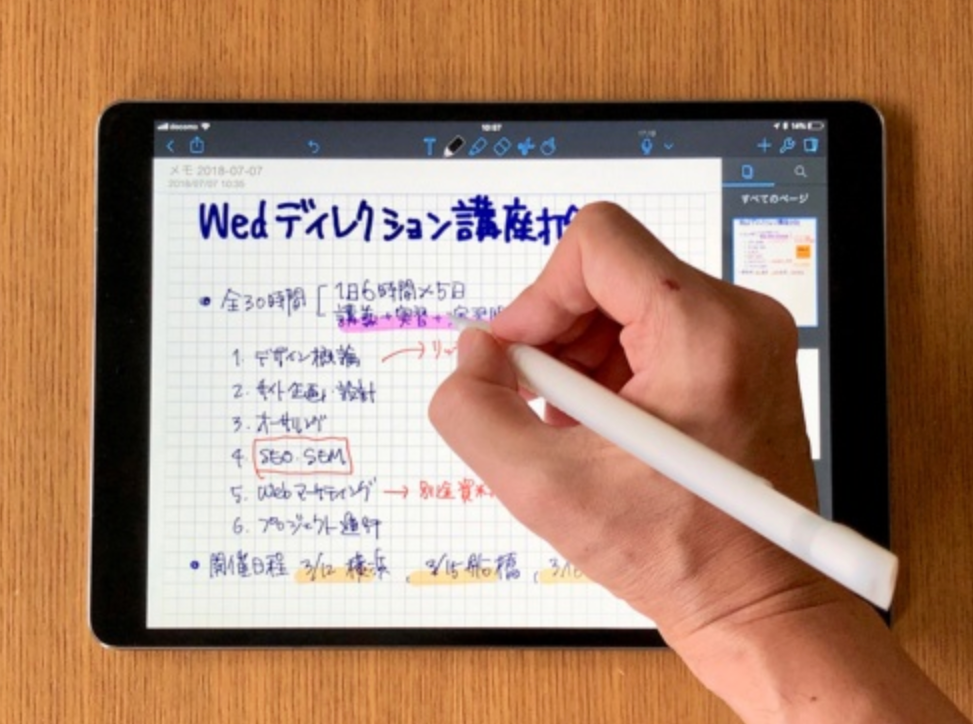 docomo 10:07 14%
メモ 2018-07-07
2018/07/07 10:35
すべてのページ
Wedディレクション講座
• 全30時間 [ 1日6時間×5日
講義+実習+
1. デザイン概論 →
2. サイト企画・設計
3. オーサリング
4. SEO・SEM
5. Webマーケティング → 別途資料
6. プロジェクト進行
• 開催日程 3/12 横浜、3/15 船橋、